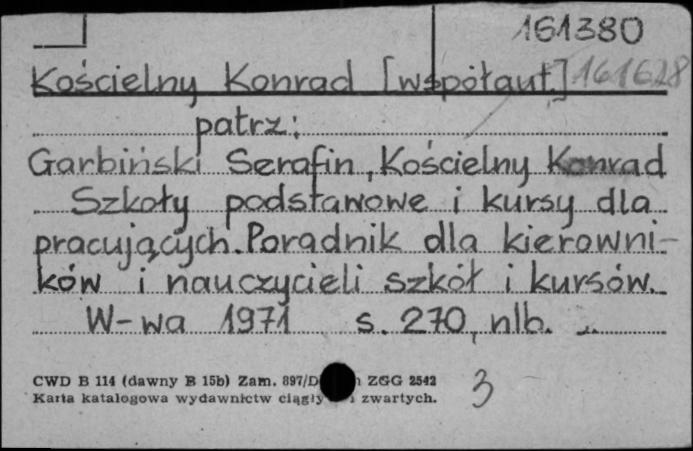 161380
Kościelny Konrad [współaut.] 161628
patrz:
Garbiński Serafin, Kościelny Konrad
Szkoły podstawowe i kursy dla
pracujących. Poradnik dla kierowni-
ków i nauczycieli szkół i kursów.
W-wa 1971 s. 270, nlb.
CWD B 114 (dawny B 15b) Zam. 897/D ZGG 2542
Karta katalogowa wydawnictw ciągły i zwartych.
3